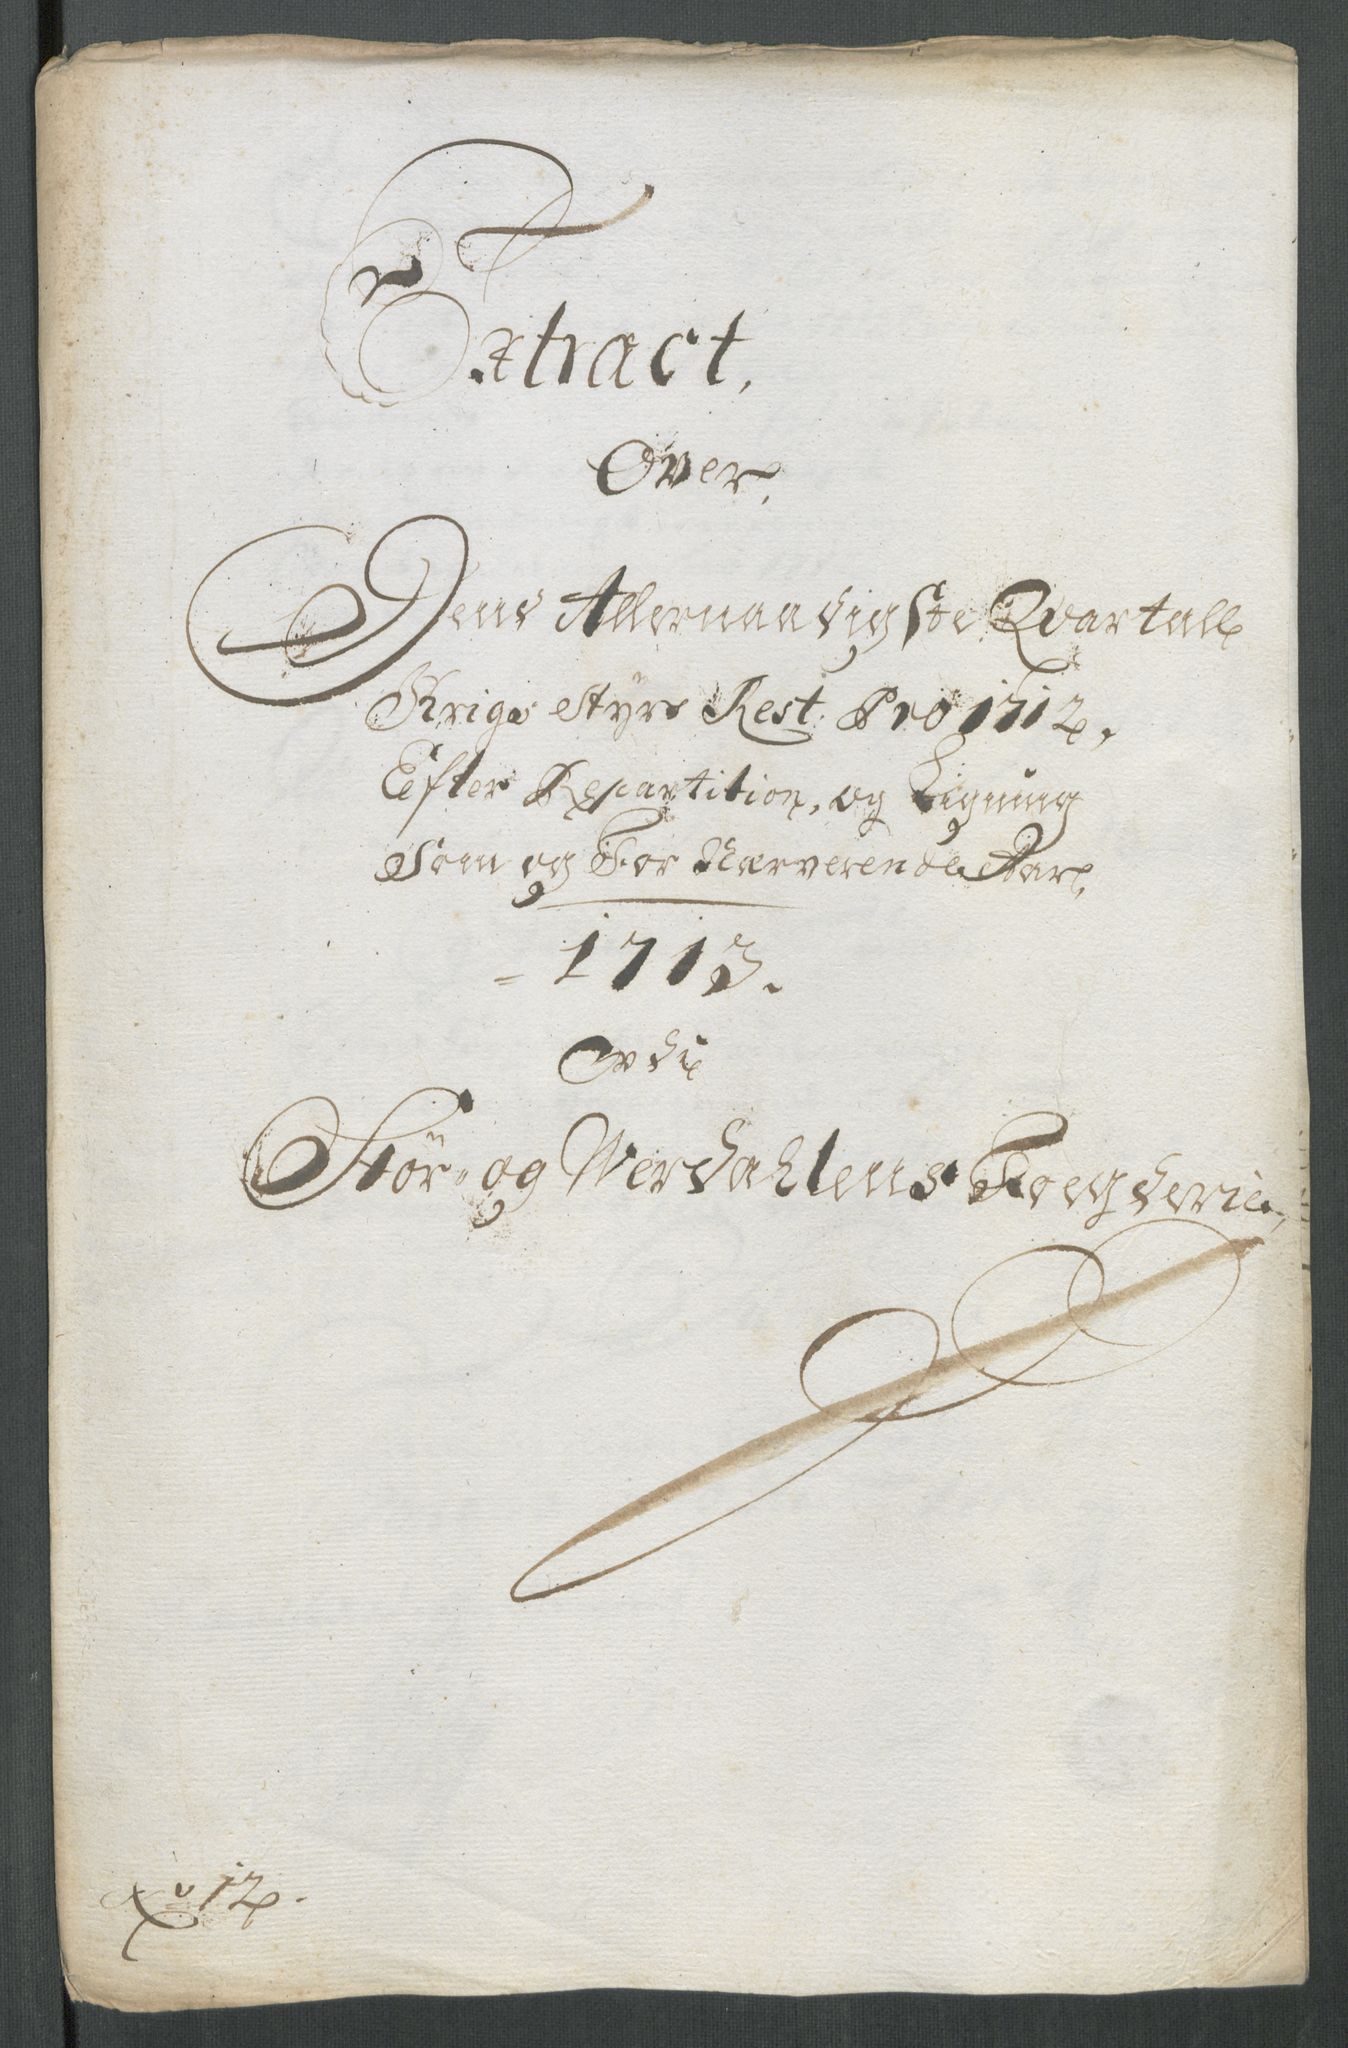 Extract,
Over,
Dend Allernaadigste Qvartall
Krigs Styrs Rest. Pro 1712,
Efter Repartition, og Ligning
Som og For Nærverende Aar,
= 1713.
Udi
Stör- og Werdahlens Foegderie,
No 12.